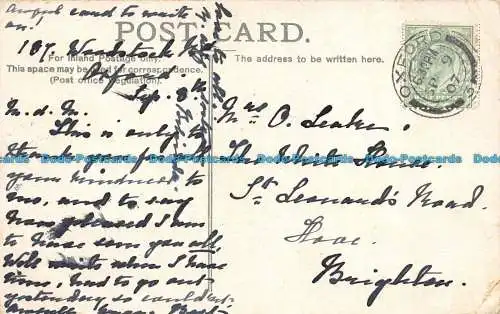 awful card to write
on!
POST CARD.
107, Woodstock Rd
For Inland Postage only.
This space may be used for correspondence.
(Post Office Regulation).
The address to be written here.
Sep. 8th
M. d. M.
This is only to
thank you for all
your kindness to
me, and to say
how pleased I am
to have seen you all,
Will write when I have
time, had to go out
yesterday so couldn't
Mrs O. Leake,
The White House.
St Leonard's Road.
Hove.
Brighton.
OXFORD
SP 9
07
Dodo-Postcards Dodo-Postcards Dodo-Postcards Dodo-Postcards Dodo-Postcards